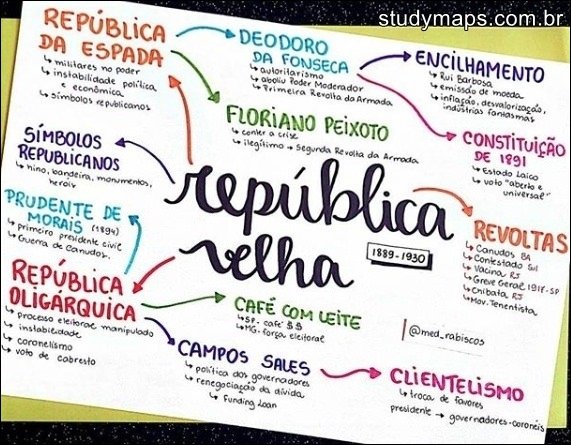 studymaps.com.br
REPÚBLICA
DA ESPADA
↳ militares no poder
↳ instabilidade política
e econômica
↳ símbolos republicanos
DEODORO
DA FONSECA
↳ autoritarismo
↳ aboliu Poder Moderador
↳ Primeira Revolta da Armada
ENCILHAMENTO
↳ Rui Barbosa
↳ emissão de moeda
↳ inflação, desvalorização,
indústrias fantasmas
FLORIANO PEIXOTO
↳ conter a crise
↳ ilegítimo → Segunda Revolta da Armada
CONSTITUIÇÃO
DE 1891
↳ Estado Laico
↳ voto "aberto e
universal"
SÍMBOLOS
REPUBLICANOS
↳ hino, bandeira, monumentos,
heróis
república
velha
1889-1930
PRUDENTE DE
MORAIS (1894)
↳ primeiro presidente civil
↳ Guerra de Canudos.
REVOLTAS
↳ Canudos BA
↳ Contestado Sul
↳ Vacina RJ
↳ Greve Geral 1917-SP
↳ Chibata RJ
↳ Mov. Tenentista
REPÚBLICA
OLIGÁRQUICA
↳ processo eleitoral manipulado
↳ instabilidade
↳ coronelismo
↳ voto de cabresto
CAFÉ COM LEITE
↳ SP: café $$
↳ MG: força eleitoral
@med_rabiscos
CAMPOS SALES
↳ política dos governadores
↳ renegociação da dívida
↳ Funding Loan
CLIENTELISMO
↳ troca de favores
presidente → governadores-coronéis